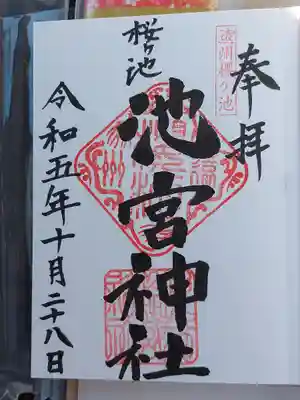 奉拝
遠州桜ヶ池
桜ヶ池
池宮神社
令和五年十月二十八日